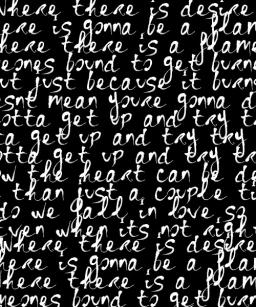 Where there is desire
ere is gonna be a flame
here there is a flame
meones bound to get burne
ut just because it burns
esnt mean youre gonna d
otta get up and try try
ta get up and try try
otta get up and try try
ow the heart can be de
than just a couple ti
do we fall in love sz
ven when its not right
where there is desire
here is gonna be a flam
where there is a flame
meones bound to get burne